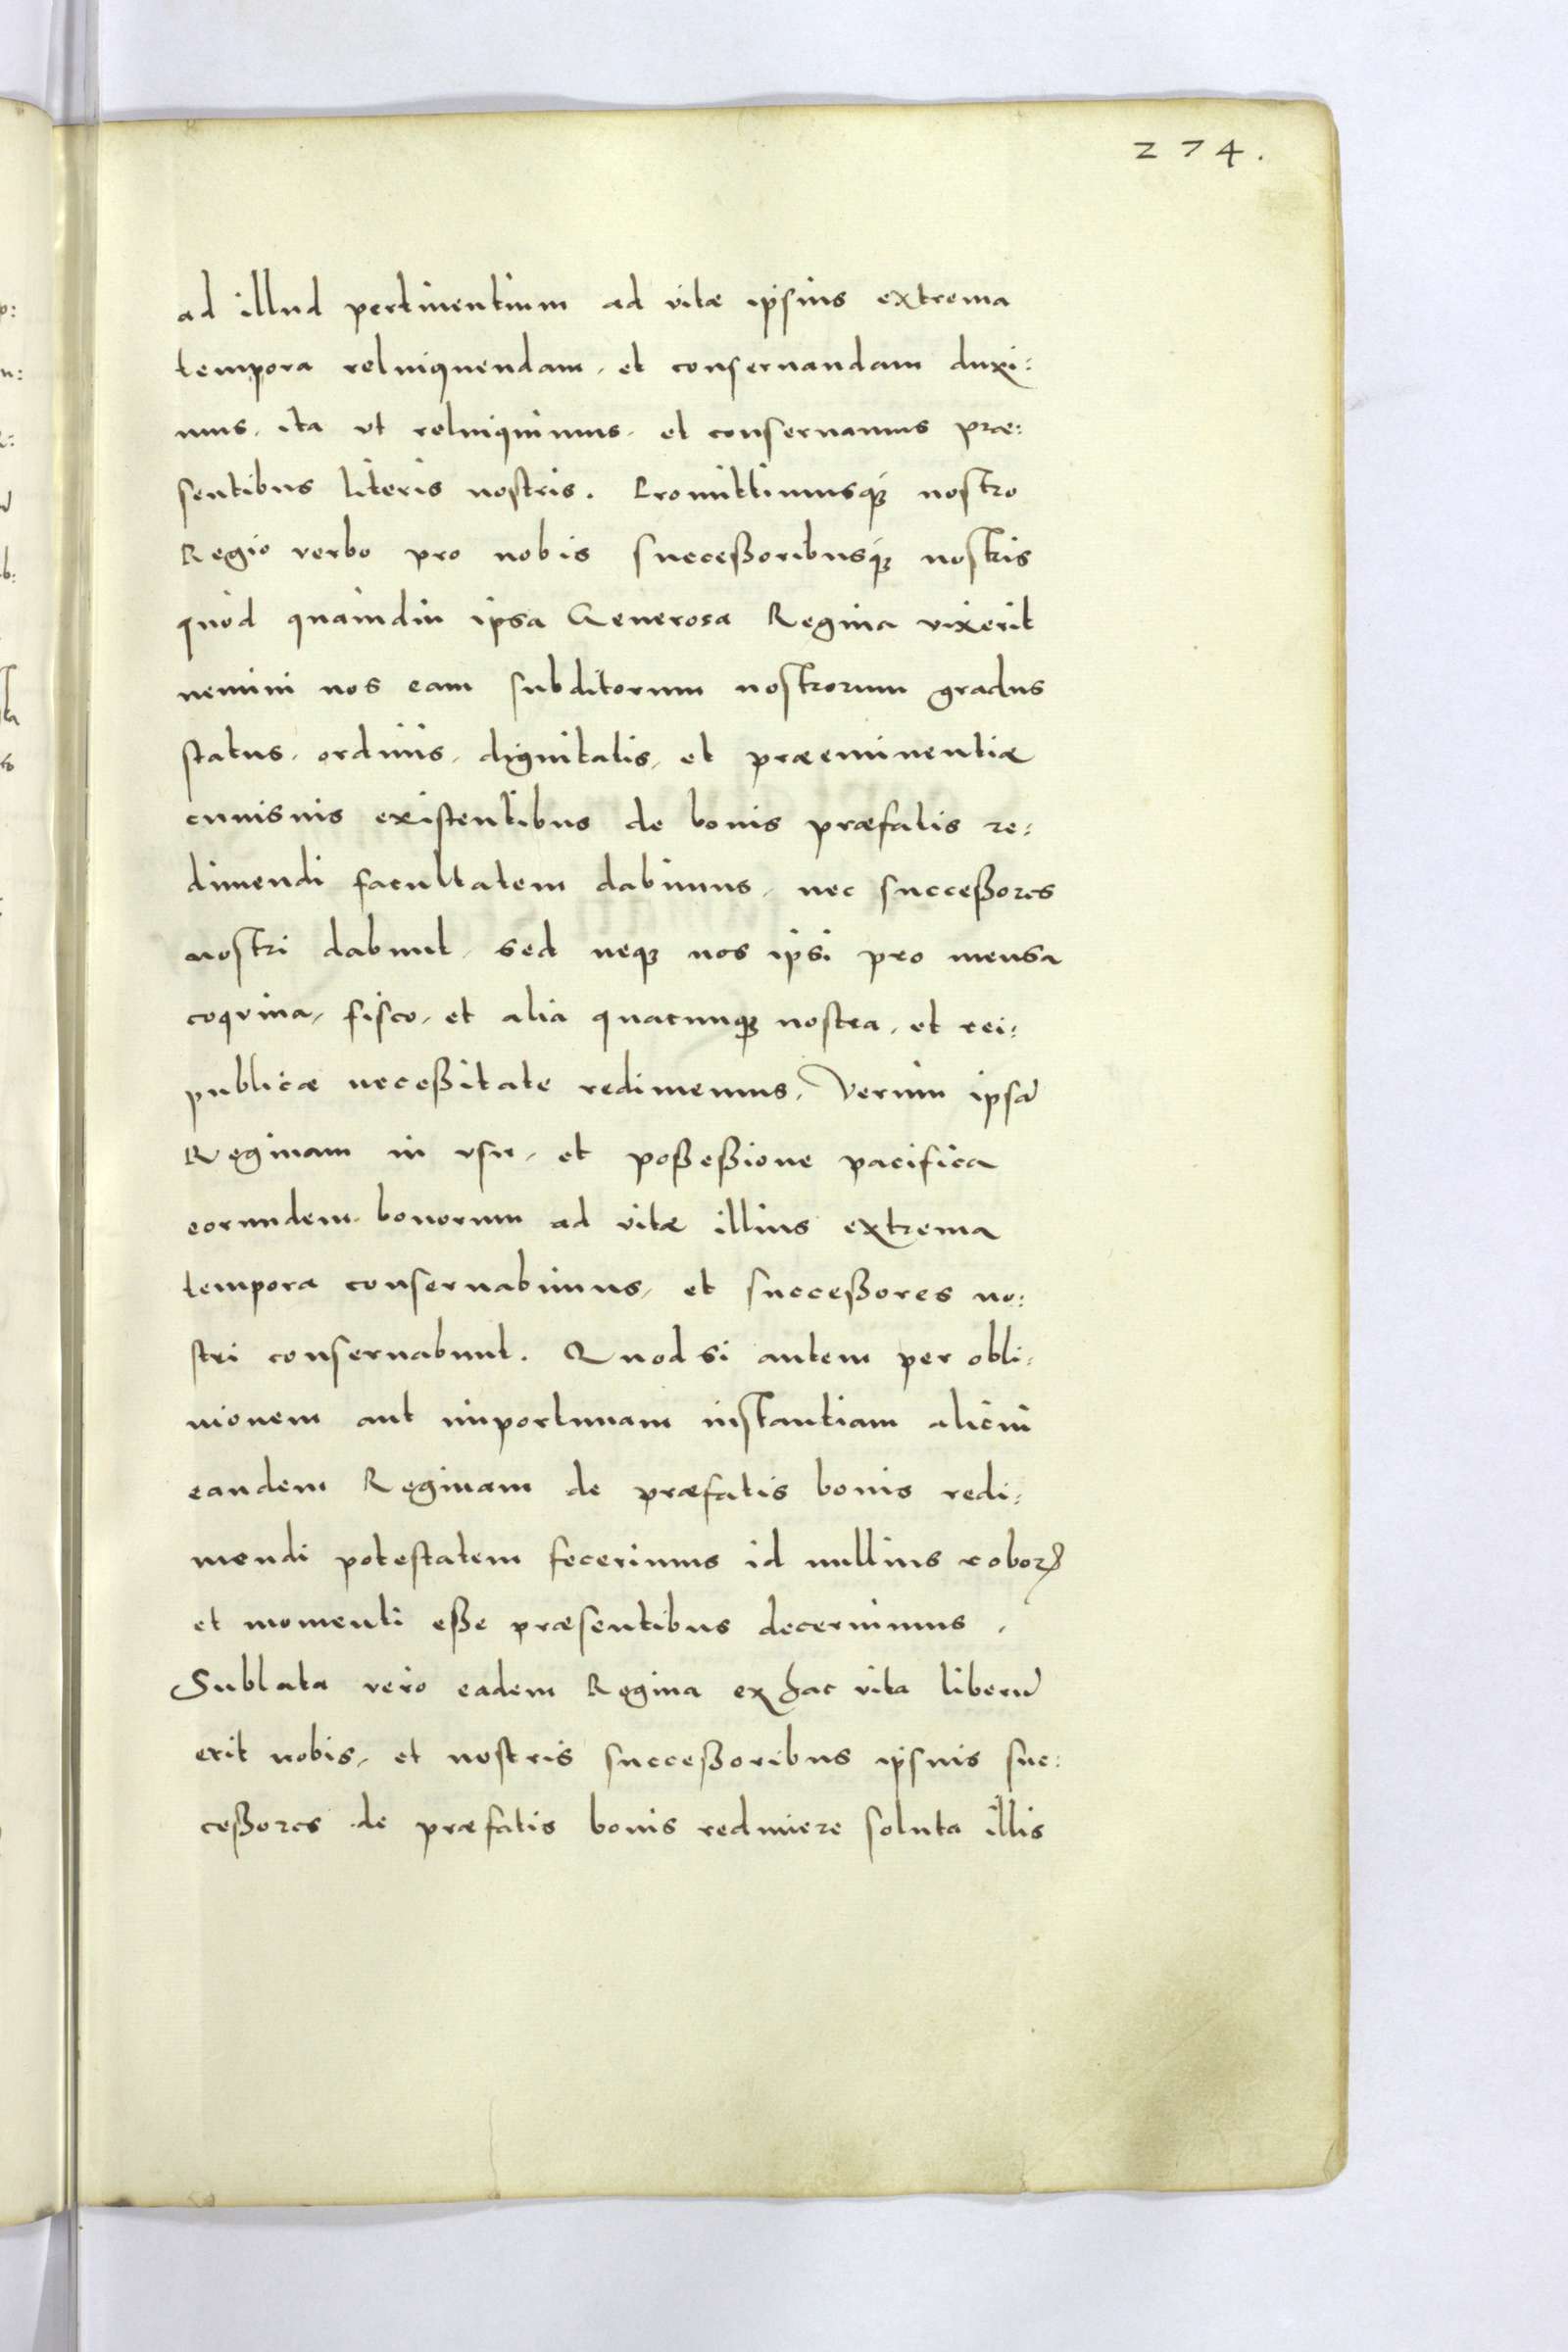 274.
ad illud pertinentium ad vitæ ipsius extrema
tempora relinquendam, et conseruandam duxi:
mus, ita vt relinquimus, et conseruamus præ:
sentibus literis nostris. Promittimusq́ꝫ nostro
Regio verbo pro nobis successoribusq́ꝫ nostris
quòd quamdiu ipsa Generosa Regina vixerit
nemini nos eam subditorum nostrorum gradus
status, ordinis, dignitatis, et præeminentiæ
cuiusuis existentibus de bonis præfatis re:
dimendi facultatem dabimus, nec successores
nostri dabunt, sed neqꝫ nos ipsi pro mensa
coquina, fisco, et alia quacunqꝫ nostra, et rei:
publicæ necessitate redimemus, Verùm ipsā
Reginam in vsu, et possessione pacifica
eorundem bonorum ad vitæ illius extrema
tempora conseruabimus, et successores no:
stri conseruabunt. Quod si autem per obli:
uionem aut importunam instantiam alicui
eandem Reginam de præfatis bonis redi:
mendi potestatem fecerimus id nullius roborꝭ
et momenti esse præsentibus decernimus,
Sublata verò eadem Regina ex hac vita liberū
erit nobis, et nostris successoribus ipsius suc:
cessores de præfatis bonis redimere soluta illis